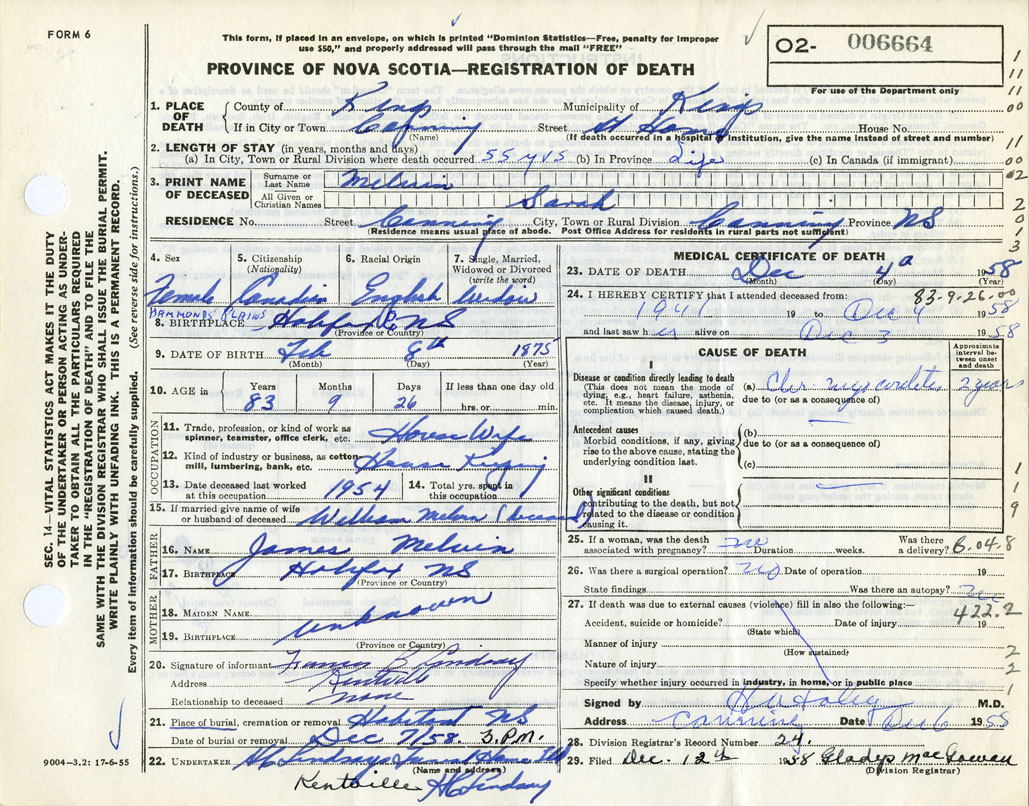 FORM 6
This form, if placed in an envelope, on which is printed "Dominion Statistics—Free, penalty for improper
use $50," and properly addressed will pass through the mail "FREE"
O2- 006664
For use of the Department only
PROVINCE OF NOVA SCOTIA—REGISTRATION OF DEATH
1. PLACE OF DEATH { County of Kings Municipality of Kings
If in City or Town Canning Street At Home House No.
(Name) (If death occurred in a hospital or institution, give the name instead of street and number)
2. LENGTH OF STAY (in years, months and days)
(a) In City, Town or Rural Division where death occurred 55 yrs (b) In Province Life (c) In Canada (if immigrant)
3. PRINT NAME OF DECEASED { Surname or Last Name Melvin
All Given or Christian Names Sarah
RESIDENCE No. Street Canning City, Town or Rural Division Canning Province NS
(Residence means usual place of abode. Post Office Address for residents in rural parts not sufficient)
4. Sex 5. Citizenship (Nationality) 6. Racial Origin 7. Single, Married, Widowed or Divorced (write the word)
Female Canadian English widow
HAMMONDS PLAINS
8. BIRTHPLACE Halifax NS
(Province or Country)
9. DATE OF BIRTH Feb 8th 1875
(Month) (Day) (Year)
10. AGE in { Years Months Days If less than one day old
83 9 26 hrs. or min.
OCCUPATION
11. Trade, profession, or kind of work as spinner, teamster, office clerk, etc. House Wife
12. Kind of industry or business, as cotton mill, lumbering, bank, etc. House Keeping
13. Date deceased last worked at this occupation 1954 14. Total yrs. spent in this occupation
15. If married give name of wife or husband of deceased William Melvin (deceased)
FATHER
16. NAME James Melvin
17. BIRTHPLACE Halifax NS
(Province or Country)
MOTHER
18. MAIDEN NAME unknown
19. BIRTHPLACE
(Province or Country)
20. Signature of informant Francis B Lindsay
Address Kentville
Relationship to deceased none
21. Place of burial, cremation or removal Habitant NS
Date of burial or removal Dec 7/58. 3.P.M.
22. UNDERTAKER Lindsays Funeral Home
(Name and address)
Kentville Lindsay
MEDICAL CERTIFICATE OF DEATH
23. DATE OF DEATH Dec 4 1958
(Month) (Day) (Year)
83-9-26-00
24. I HEREBY CERTIFY that I attended deceased from:
1941 19 to Dec 4 1958
and last saw her alive on Dec 3 1958
CAUSE OF DEATH
Approximate interval between onset and death
I
Disease or condition directly leading to death
(This does not mean the mode of dying, e.g., heart failure, asthenia, etc. It means the disease, injury, or complication which caused death.)
(a) Chr myocarditis 2 years
due to (or as a consequence of)
Antecedent causes
Morbid conditions, if any, giving rise to the above cause, stating the underlying condition last.
(b)
due to (or as a consequence of)
(c)
II
Other significant conditions
contributing to the death, but not related to the disease or condition causing it.
25. If a woman, was the death associated with pregnancy? no Duration weeks. Was there a delivery? B.04.8
26. Was there a surgical operation? no Date of operation 19
State findings Was there an autopsy? no
27. If death was due to external causes (violence) fill in also the following:—
422.2
Accident, suicide or homicide? Date of injury 19
(State which)
Manner of injury
(How sustained)
Nature of injury
Specify whether injury occurred in industry, in home, or in public place
Signed by M.D.
Address Canning Date Dec 6 1958
28. Division Registrar's Record Number 24.
29. Filed Dec. 12 1958 Gladys MacGowan
(Division Registrar)
SEC. 14—VITAL STATISTICS ACT MAKES IT THE DUTY
OF THE UNDERTAKER OR PERSON ACTING AS UNDER-
TAKER TO OBTAIN ALL THE PARTICULARS REQUIRED
IN THE "REGISTRATION OF DEATH" AND TO FILE THE
SAME WITH THE DIVISION REGISTRAR WHO SHALL ISSUE THE BURIAL PERMIT.
WRITE PLAINLY WITH UNFADING INK. THIS IS A PERMANENT RECORD.
Every item of information should be carefully supplied. (See reverse side for instructions.)
9004—3.2: 17-6-55
1
11
11
00
11
00
02
2
0
1
3
1
1
9
2
2
1